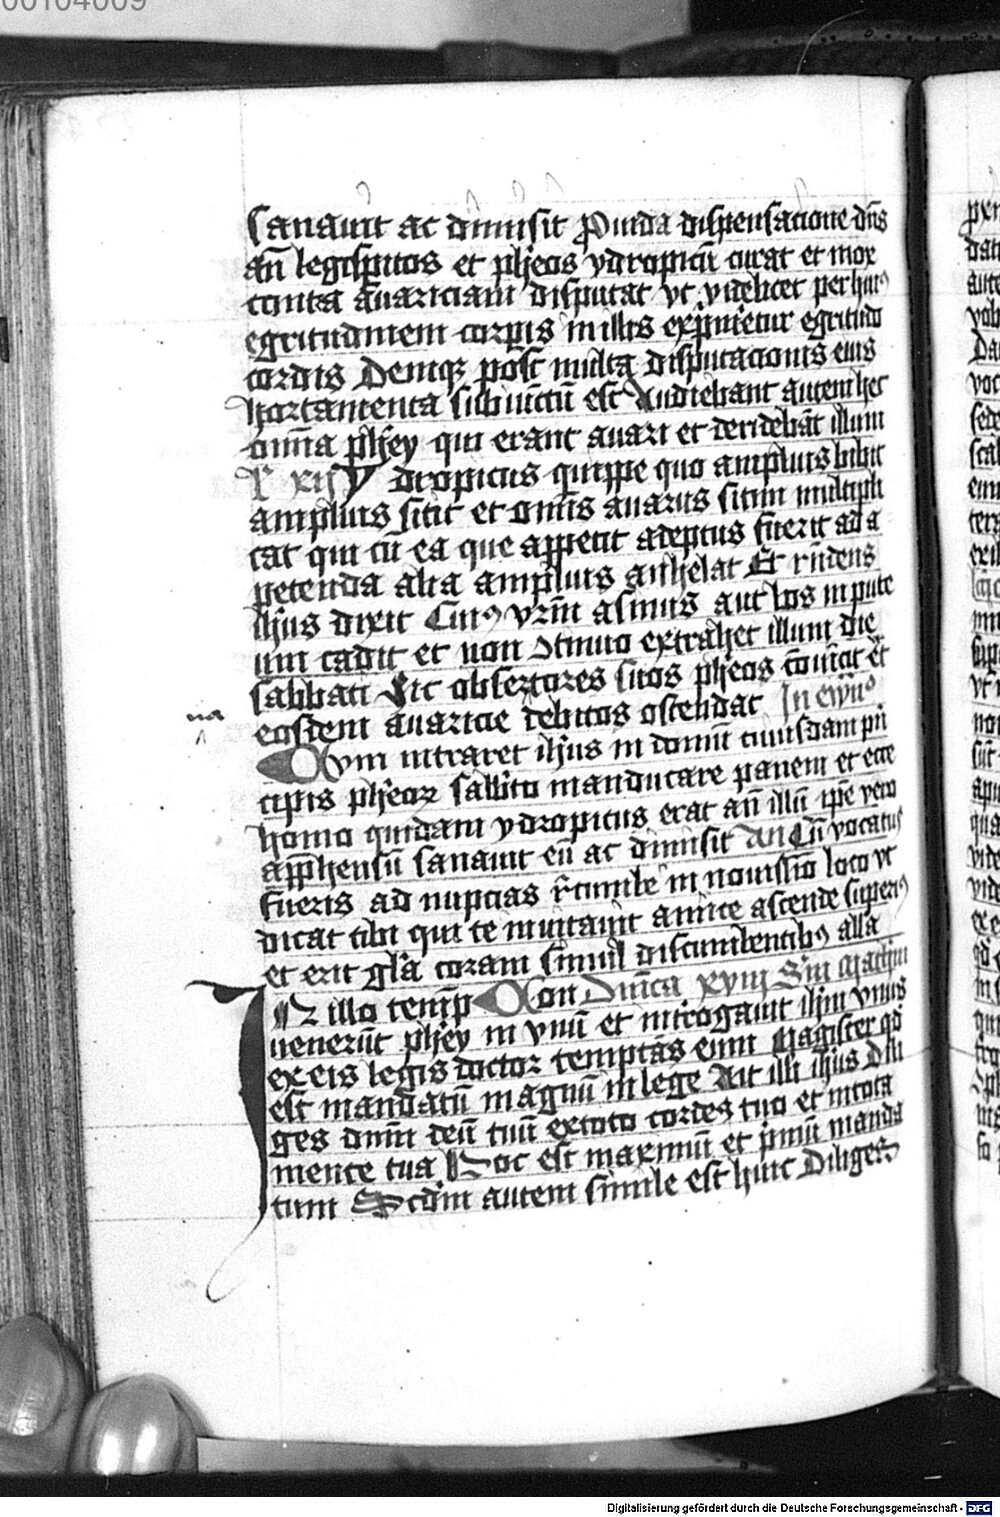 00104009
sanauit ac dimisit Prouida dispensacione dn̄s
an̄ legisp̱itos et ph̄eos ydropicū curat et mox
contra auariciam disputat vt videlicet per huiꝰ
egritudinem corp̱is in illis exp̱meretur egritudo
cordis Deniqꝫ post multa disputacionis eius
hortamenta subiunctū est Audiebant autem hec
om̄ia ph̄ey qui erant auari et deridebāt illum
Lc̄ xiiij Ydropicus quippe quo amplius bibit
amplius sitit et om̄is auarus sitim multipli
cat qui cū ea que appetit adeptus fuerit ad a
petenda alia amplius anhelat Et r̄ndens
ih̄us dixit Cuiꝰ vr̄m asinus aut bos in pute
um cadit et non ꝯtinuo extrahet illum die
sabbati Sic obseruatores suos ph̄eos ꝯuīcat et
na
eosdem auaricie debitos ostendat In ewūo
Cum intraret ih̄us in domū cuiusdam pri
cipis ph̄eoꝝ sabbato manducare panem et ecce
homo quidam ydropicus erat an̄ illū ip̄e vero
app̄hensū sanauit eū ac dimisit An Cū vocatus
fueris ad nupcias r̄cumbe in nouissīo loco vt
dicat tibi qui te inuitauit amice ascende superiꝰ
et erit gl̄a coram simul discumbentibꝰ alla
In illo temp̄ Con Dn̄ica xviij Sm̄ Mathm̄
uenerūt ph̄ey in vnū et int̄rogauit ih̄m vnus
ex eis legis doctor temptās eum Magister qd̄
est mandatū magnū in lege Ait illi ih̄us Dili
ges dn̄m deū tuū ex toto corde tuo et in tota
mente tua Hoc est maximū et p̱mū manda
tum Scd̄m autem simile est huic Diliges
Digitalisierung gefördert durch die Deutsche Forschungsgemeinschaft - DFG